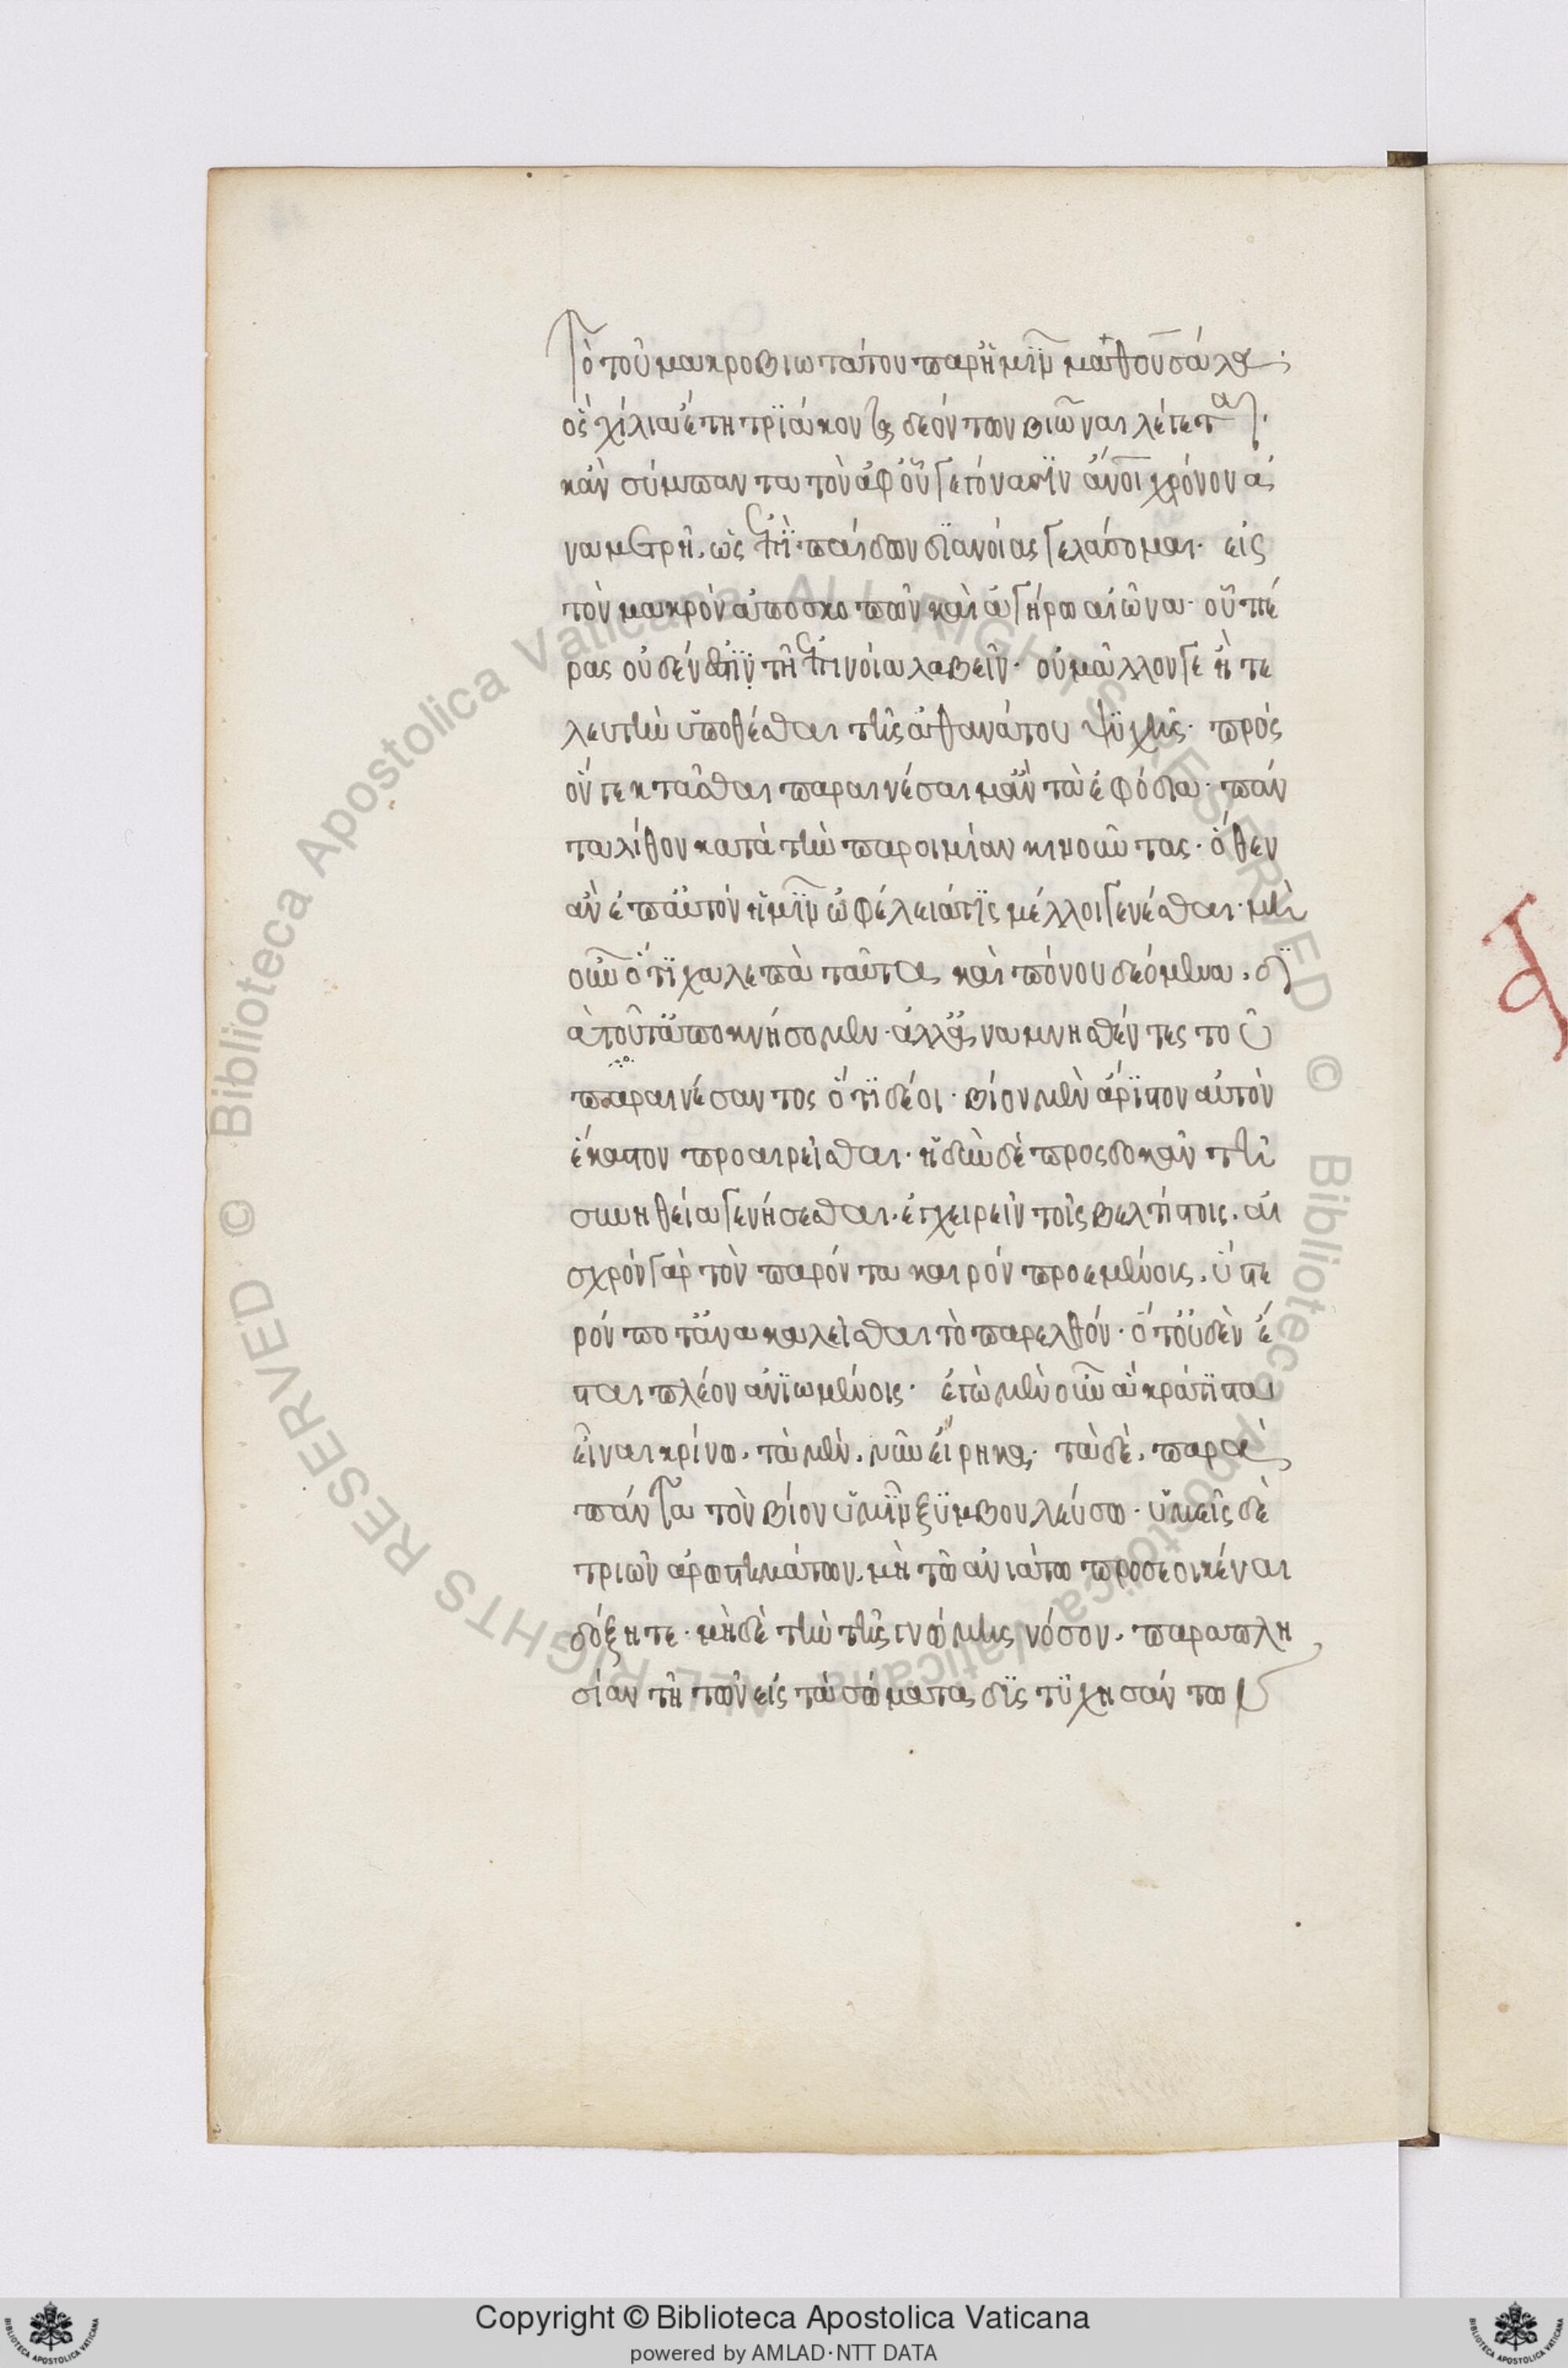 τὸ τοῦ μακροβιωτάτου παρ' ἡμῖν μαθουσάλα·
ὃς χίλια ἔτη τριάκοντα δεόντων βιῶναι λέγεται·
κἂν σύμπαντα τὸν ἀφ' οὗ γεγόνασιν ἄνοι χρόνον ἀ
ναμετρῇ. ὡς ἐπὶ παίδων διανοίας γελάσομαι· εἰς
τὸν μακρὸν ἀποσκοπῶν καὶ ἀγήρω αἰῶνα· οὗ πέ
ρας οὐδέν ἐστιν τῇ ἐπινοία λαβεῖν· οὐ μᾶλλον γε ἢ τε
λευτὴν ὑποθέσθαι τῆς ἀθανάτου ψυχῆς· πρὸς
ὅν γε κτᾶσθαι παραινέσαιμ' ἂν τὰ ἐφόδια· πάν
τα λίθον κατὰ τὴν παροιμίαν κινοῦντας· ὅθεν
ἂν ἐπ' αὐτὸν ἡμῖν ὠφέλειά τις μέλλοι γενέσθαι· μὴ
οὖν ὅτι χαλεπὰ ταῦτα καὶ πόνου δεόμενα. δι
ὰ τοῦτ' ἀποκνήσομεν· ἀλλ' ἀναμνησθέντες τοῦ
παραινέσαντος ὅτι δέοι· βίον μὲν ἄριστον αὐτὸν
ἕκαστον προαιρεῖσθαι· ἡδὺν δὲ προσδοκᾶν τῇ
συνηθεία γενήσεσθαι. ἐγχειρεῖν τοῖς βελτίστοις. αἰ
σχρὸν γὰρ τὸν παρόντα καιρὸν προεμένοις. ὕστε
ρόν ποτ' ἀνακαλεῖσθαι τὸ παρελθόν· ὅτ' οὐδὲν ἔ
σται πλέον ἀνιωμένοις· ἐγὼ μὲν οὖν ἃ κράτιστα
εἶναι κρίνω. τὰ μὲν. νῦν εἴρηκα· τὰ δὲ. παρὰ
πάντα τὸν βίον ὑμῖν ξυμβουλεύσω· ὑμεῖς δὲ
τριῶν ἀρωστημάτων. μὴ τῷ ἀνιάτω προσεοικέναι
δόξητε· μὴ δὲ τὴν τῆς γνώμης νόσον. παραπλη
σίαν τῇ τῶν εἰς τὰ σώματα δυστυχησάντων